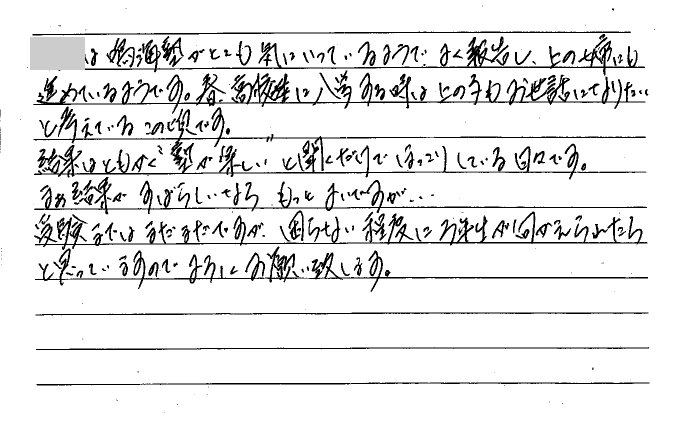 は 塾がとても気にいっているようで よく報告し、上の姉にも
進めているようです。春、高校生に入学する時は上の子もお世話になりたい
と考えているこの頃です。
結果はともかく“塾が楽しい”と聞くだけでほっこりしている日々です。
まぁ結果がすばらしいなら もっとよいですが…
受験まではまだまだですが、困らない程度にお先生が うかがえられたら
と思っていますのでよろしくお願い致します。